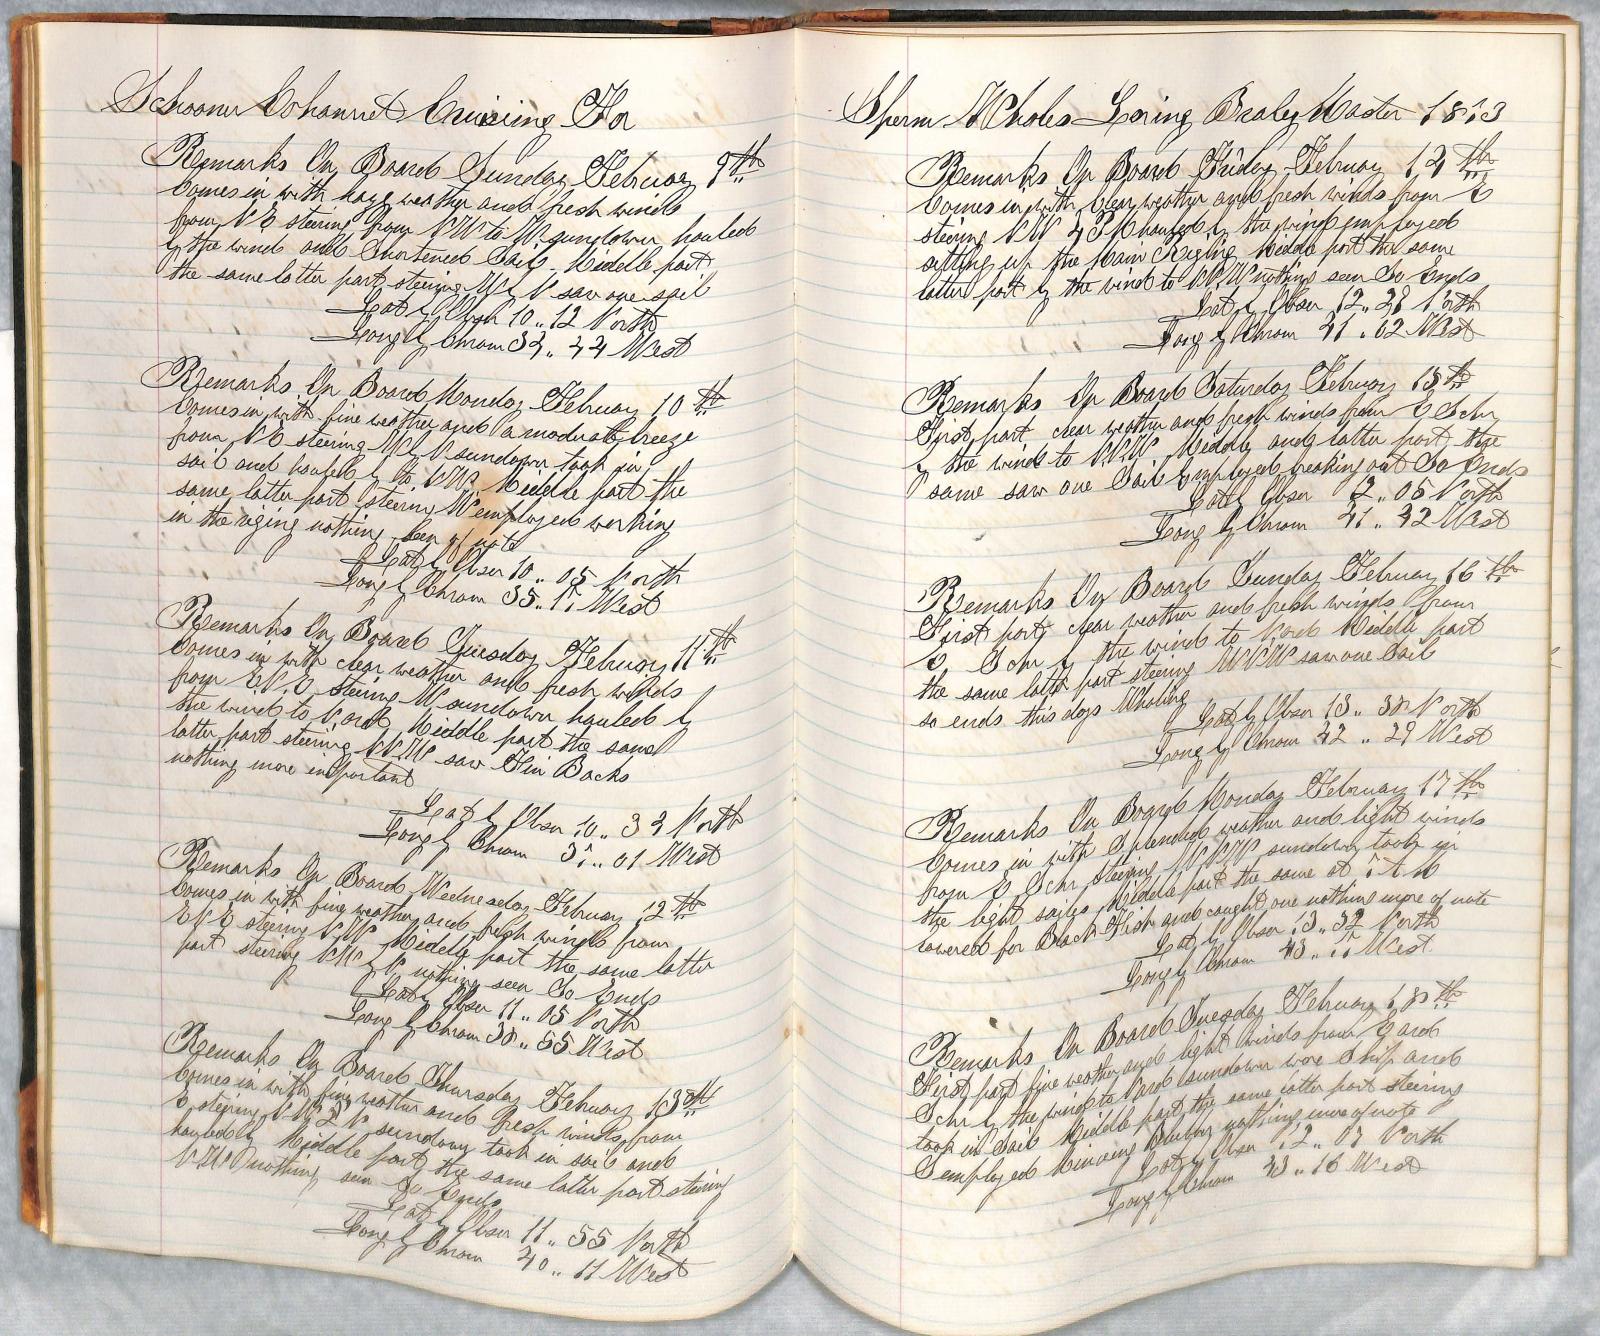 Schooner Cohannet Cruising For
Remarks On Board Sunday Februay 9th
Comes in with hazy weather and fresh winds
from N E steering from NW to W. sundown hauled
by the wind and Shortened Sail. Middle part
the same latter part steering W by N saw one sail
Lat by Obsn 10 .. 12 North
Long by Chrom 34 .. 44 West
Remarks On Board Monday February 10th
Comes in with fine weather and a moderate breeze
from N E steering W by N sundown took in
sail and hauled by to NW Middle part the
same latter part steering W employed working
in the riging nothing seen of note
Lat by Obsn 10 .. 05 North
Long by Chrom 35 .. 17 West
Remarks On Board Tuesday Februay 11th
Comes in with clear weather and fresh winds
from E.N.E. steering W. sundown hauled by
the wind to N.ard Middle part the same
latter part steering NNW saw Fin Backs
nothing more important
Lat by Obsn 10 .. 34 North
Long by Chrom 37 .. 01 West
Remarks On Board Wednesday February 12th
Comes in with fine weather and fresh winds from
ENE steering NW Middle part the same latter
part steering NW by N nothing seen So Ends
Lat by Obsn 11 .. 05 North
Long by Chrom 38 .. 55 West
Remarks On Board Thursday February 13th
Comes in with fine weather and fresh winds from
E steering NW by N sundown took in sail and
hauled by Middle part the same latter part steering
NW nothing seen So Ends
Lat by Obsn 11 .. 55 North
Long by Chrom 40 .. 11 West
Sperm Whales Loring Braley Master 1873
Remarks On Board Friday February 14th
Comes in with Clear weather and fresh winds from E
steering NW 4 P M hauled by the wind employed
setting up the Main Riging Middle part the same
latter part by the wind to NNW nothing seen So Ends
Lat by Obsn 12 .. 28 North
Long by Chrom 41 .. 02 West
Remarks On Board Saturday February 15th
First part clear weather and fresh winds from E Schr
by the wind to N.N.W. Middle and latter part the
same saw one Sail Employed breaking out So Ends
Lat by Obsn 12 .. 05 North
Long by Chrom 41 .. 42 West
Remarks On Board Sunday February 16th
First part clear weather and fresh winds from
E. Schr by the wind to N.ard Middle part
the same latter part steering WNW saw one Sail
so ends this days Whaling
Lat by Obsn 13 .. 38 North
Long by Chrom 42 .. 29 West
Remarks On Board Monday February 17th
Comes in with Splended weather and light winds
from E Schr steering WNW sundown took in
the light sailes Middle part the same at 7 A M
lowered for Black Fish and caught one nothing more of note
Lat by Obsn 13 .. 32 North
Long by Chrom 43 .. 17 West
Remarks On Board Tuesday February 18th
First part fine weather and light winds from Eard
Schr by the wind to Nard sundown wore Ship and
took in Sail Middle part the same latter part steering
S employed Mincing Blubber nothing more of note
Lat by Obsn 12 .. 07 North
Long by Chrom 43 .. 16 West